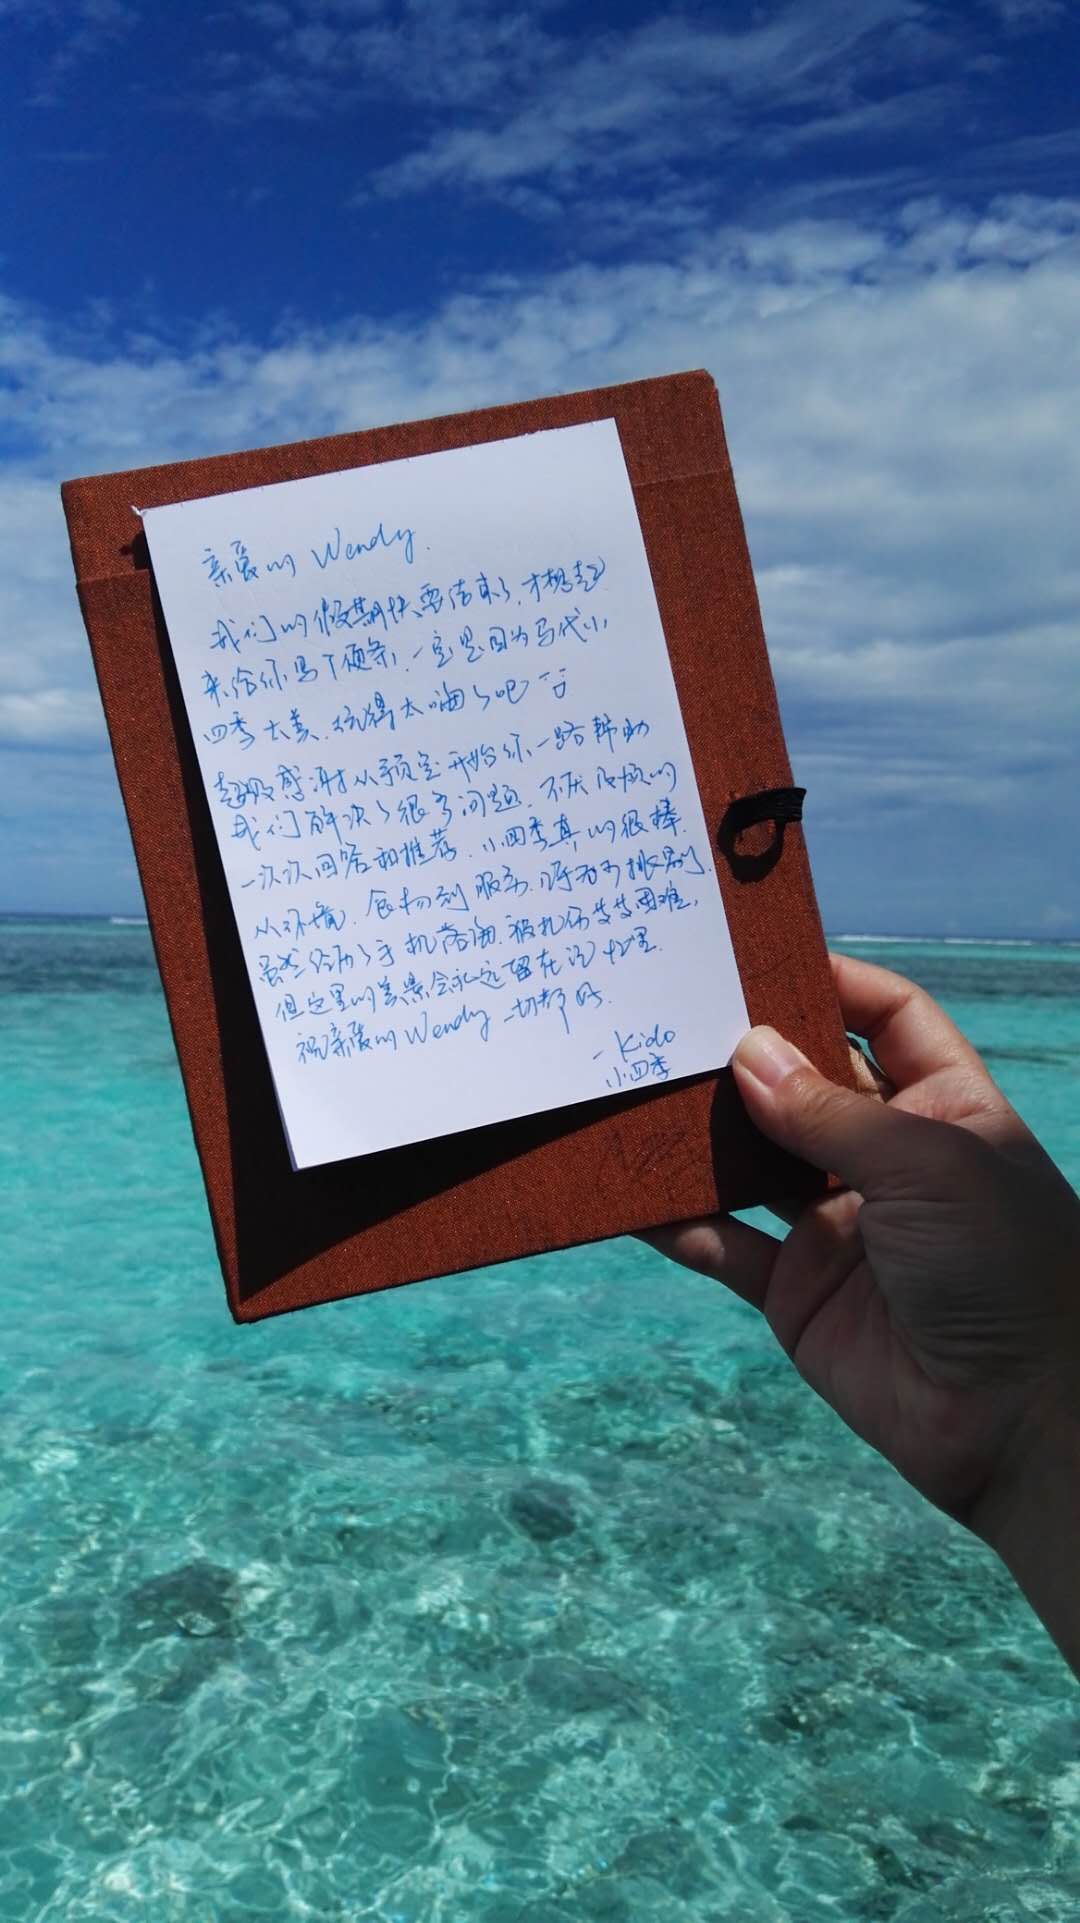 亲爱的 Wendy.
我们的假期快要结束了，才想起
来给你写下颂条，一定是因为马代小
四季太美，玩得太嗨了吧
超级感谢从预定开始你一路帮助
我们解决了很多问题，不厌其烦的
一次次回答和推荐。小四季真的很棒，
从环境，食物到服务，呼为不挑剔，
虽然经历了手机落海，被扎伤等等困难，
但这里的美景会永远留在记忆里。
祝亲爱的 Wendy 一切都好.
- Kido
小四季